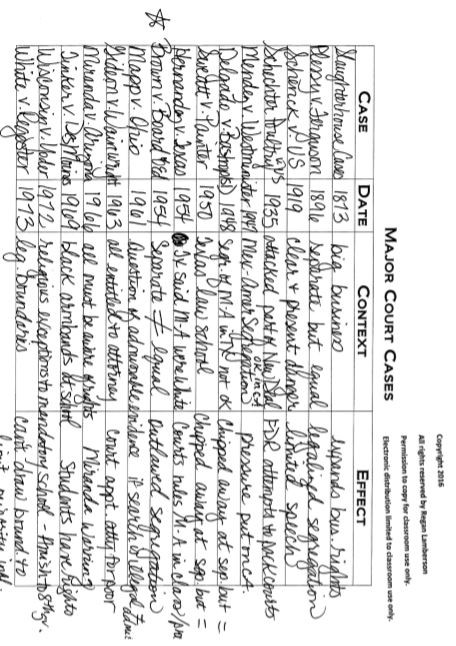 Copyright 2016
All rights reserved by Regan Lamberson
Permission to copy for classroom use only.
Electronic distribution limited to classroom use only.
MAJOR COURT CASES
CASE DATE CONTEXT EFFECT
Slaughterhouse Cases 1873 big business expands bus. rights
Plessy v. Ferguson 1896 separate but equal legalized segregation
Schenck v US 1919 clear + present danger limited speech
Schechter Poultry v US 1935 attacked part of New Deal FDR attempts to pack courts
Mendez v. Westminster 1947 Mex-Amer Segregation ok in CA pressure put on
Delgado v. Bastrop ISD 1948 Seg. of M-A in TX not ok Chipped away at sep but =
Sweatt v. Painter 1950 Texas law school Chipped away at sep but =
Hernandez v. Texas 1954 TX said M-A were white Courts rules M-A in class/
Brown v. Board of Ed 1954 Separate ≠ equal Outlaws segregation
Mapp v. Ohio 1961 Question of admissible evidence if search is illegal
Gideon v. Wainwright 1963 all entitled to attorney Court appt. atty for poor
Miranda v. Arizona 1966 all must be aware of rights Miranda Warning
Tinker v. Des Moines 1969 black armbands at school Students have rights
Wisconsin v. Yoder 1972 religious exceptions to mandatory school
White v. Regester 1973 leg. Boundaries can't draw bound. to
limit